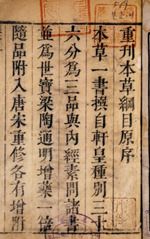 重刊本草綱目原序
本草一書撰自軒皇種別三十
六分為三品與內經素問諸書
並為世寶梁陶通明增藥一倍
隨品附入唐宋重修各有增附